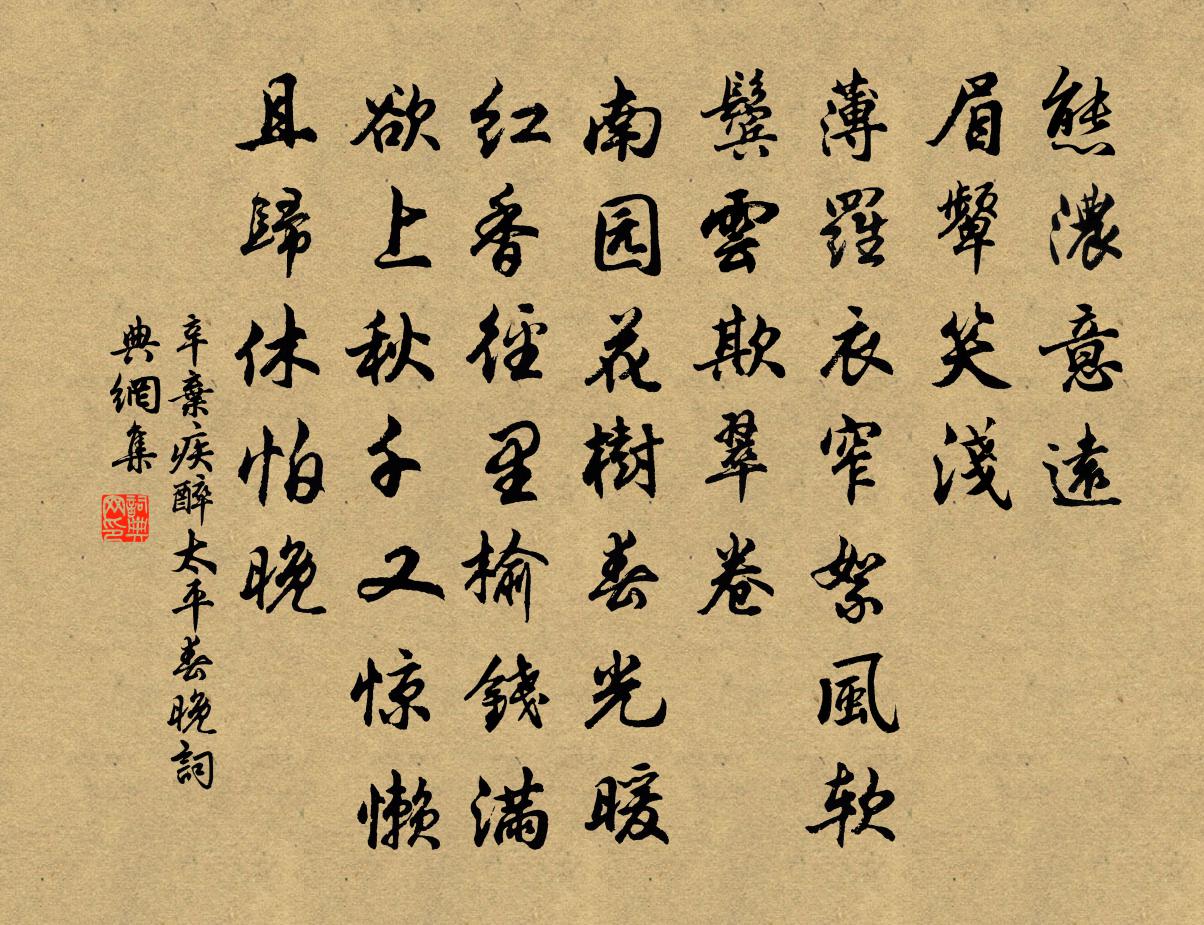 態濃意遠
眉顰笑淺
薄羅衣窄絮風软
鬢雲欺翠卷
南园花樹春光暖
红香徑里榆錢滿
欲上秋千又惊懶
且歸休怕晚
辛棄疾醉太平春晚詞
典網集
詞典
网印